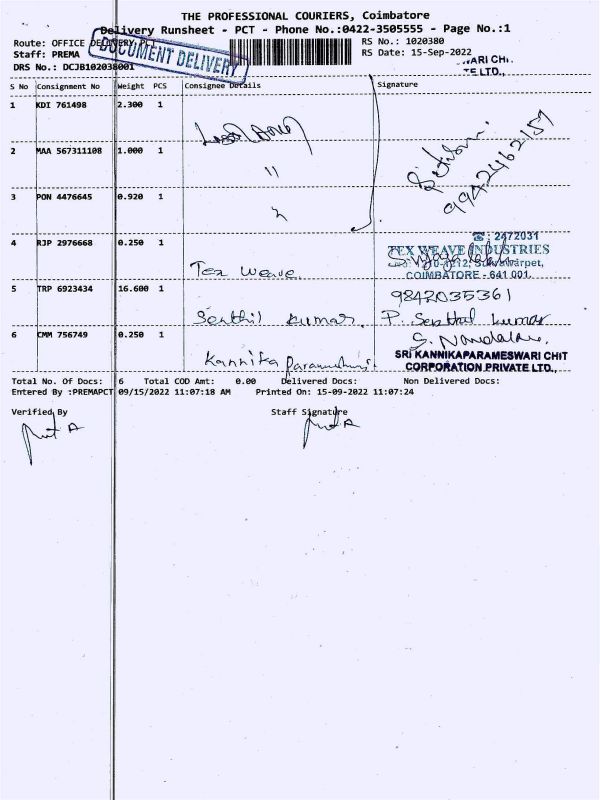 THE PROFESSIONAL COURIERS, Coimbatore
Delivery Runsheet - PCT - Phone No.:0422-3505555 - Page No.:1
Route: OFFICE DELIVERY PCT
RS No.: 1020380
Staff: PREMA
RS Date: 15-Sep-2022
DRS No.: DCJB102038001
DOCUMENT DELIVERY
ARI CHI
TE LTD.,
S No Consignment No Weight PCS Consignee Details Signature
1 KDI 761498 2.300 1
2 MAA 567311108 1.000 1 "
9942462159
3 PON 4476645 0.920 1
☎: 2472031
TEX WEAVE INDUSTRIES
4 RJP 2976668 0.250 1 Tex Weave
COIMBATORE - 641 001.
5 TRP 6923434 16.600 1 9842035361
Senthil Kumar. P. Senthil Kumar
6 CMM 756749 0.250 1
Kannika Parameshwari
SRI KANNIKAPARAMESWARI CHIT
CORPORATION PRIVATE LTD.,
Total No. Of Docs: 6 Total COD Amt: 0.00 Delivered Docs: Non Delivered Docs:
Entered By :PREMAPCT 09/15/2022 11:07:18 AM Printed On: 15-09-2022 11:07:24
Verified By Staff Signature